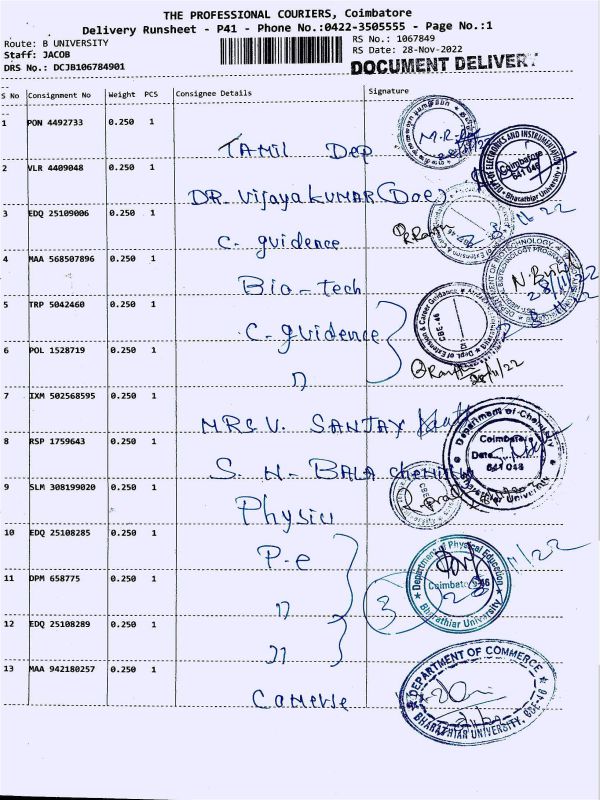 THE PROFESSIONAL COURIERS, Coimbatore
Delivery Runsheet - P41 - Phone No.:0422-3505555 - Page No.:1
Route: B UNIVERSITY
Staff: JACOB
DRS No.: DCJB106784901
RS No.: 1067849
RS Date: 28-Nov-2022
DOCUMENT DELIVERY
S No Consignment No Weight PCS Consignee Details Signature
1 PON 4492733 0.250 1 TAMIL Dep
2 VLR 4409048 0.250 1 DR. VijayaKUMAR (Doe).
3 EDQ 25109006 0.250 1 C. guidence
4 MAA 568507896 0.250 1 Bio-tech
5 TRP 5042460 0.250 1 C. guidence
6 POL 1528719 0.250 1 n
7 IXM 502568595 0.250 1 MRS V. SANJAY
8 RSP 1759643 0.250 1 S. N- BALA
9 SLM 308199020 0.250 1 Physics
10 EDQ 25108285 0.250 1 P-e
11 DPM 658775 0.250 1 n
12 EDQ 25108289 0.250 1 n
13 MAA 942180257 0.250 1
3
Coimbatore
641 046
Bharathiar University
DEPARTMENT OF BIOTECHNOLOGY
Dept. of Extension & Career Guidance
CBE-46
28/11/22
Department of Chemistry
Coimbatore
Date
641 046
Bharathiar University
Department of Physical Education
Coimbatore-46
Bharathiar University
DEPARTMENT OF COMMERCE
BHARATHIAR UNIVERSITY, CBE-46